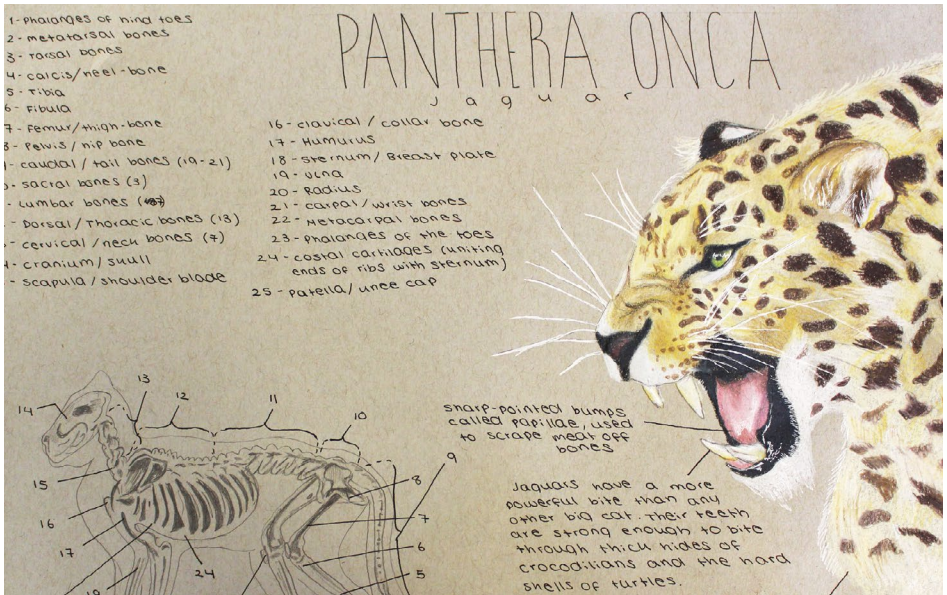 PANTHERA ONCA
jaguar
1-Phalanges of hind toes
2-metatarsal bones
3-Tarsal bones
4-calcis/heel-bone
5-Tibia
6-Fibula
7-Femur/thigh-bone
8-Pelvis/hip bone
-caudal/tail bones (19-21)
-sacral bones (3)
-Lumbar bones
-Dorsal/Thoracic bones (13)
-cervical/neck bones (7)
-cranium/skull
-scapula/shoulder blade
16-clavical/collar bone
17-Humurus
18-sternum/Breast plate
19-ulna
20-Radius
21-carpal/wrist bones
22-Metacarpal bones
23-phalanges of the toes
24-costal cartilages (uniting
ends of ribs with sternum)
25-patella/knee cap
13
12
11
10
14
9
8
15
16
7
17
6
24
5
sharp-pointed bumps
called papillae, used
to scrape meat off
bones
Jaguars have a more
powerful bite than any
other big cat. Their teeth
are strong enough to bite
through thick hides of
crocodilians and the hard
shells of turtles.